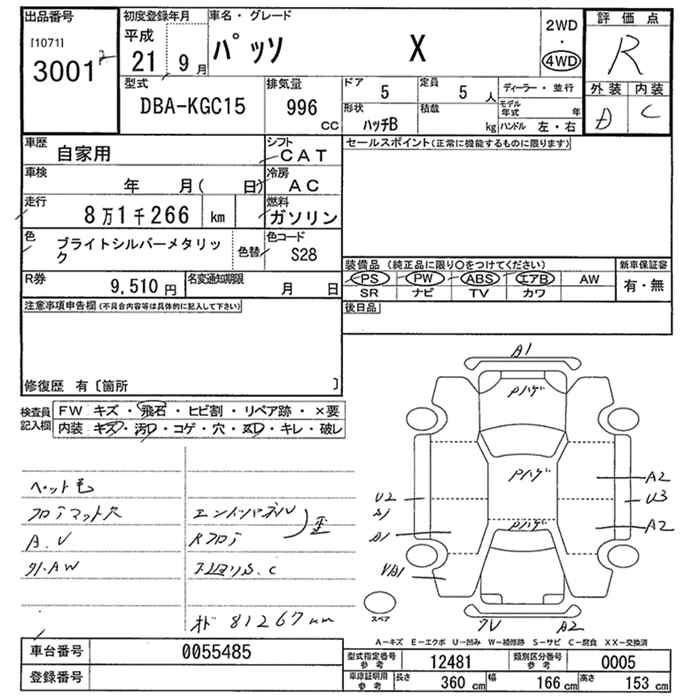 出品番号 初度登録年月 車名・グレード 2WD 評価点
[1071] 平成 ・
3001 21 9月 パッソ X 4WD R
型式 排気量 ドア 5 定員 5人 ディーラー・並行 外装 内装
DBA-KGC15 996 CC 形状 ハッチB 積載 kg モデル年式 年 D C
ハンドル 左・右
車歴 自家用 シフト CAT セールスポイント(正常に機能するものに限ります)
車検 年 月( 日) 冷房 AC
走行 8万1千266 km 燃料 ガソリン
色 ブライトシルバーメタリック 色替 色コード S28
装備品 (純正品に限り○をつけてください) 新車保証書
R券 9,510円 名変通知期限 月 日 PS PW ABS エアB AW 有・無
SR ナビ TV カワ
注意事項申告欄(不具合内容等は具体的に記入して下さい) 後日品
修復歴 有〔箇所 〕
検査員 FW キズ・飛石・ヒビ割・リペア跡・×要
記入欄 内装 キズ・汚レ・コゲ・穴・ヌレ・キレ・破レ
A1
Pハゲ
Pハゲ
Pハゲ
A2
U2 U3
A1
A1 A2
ペット毛
フロアマット穴 エンドパネル
A.U Rフロア 歪
外.AW
オド 81267km
A2
スペア
A-キズ E-エクボ U-凹み W-補修跡 S-サビ C-腐食 XX-交換済
車台番号 0055485
登録番号
型式指定番号 参考 12481 類別区分番号 参考 0005
車庫証明用 参考 長さ 360 cm 幅 166 cm 高さ 153 cm